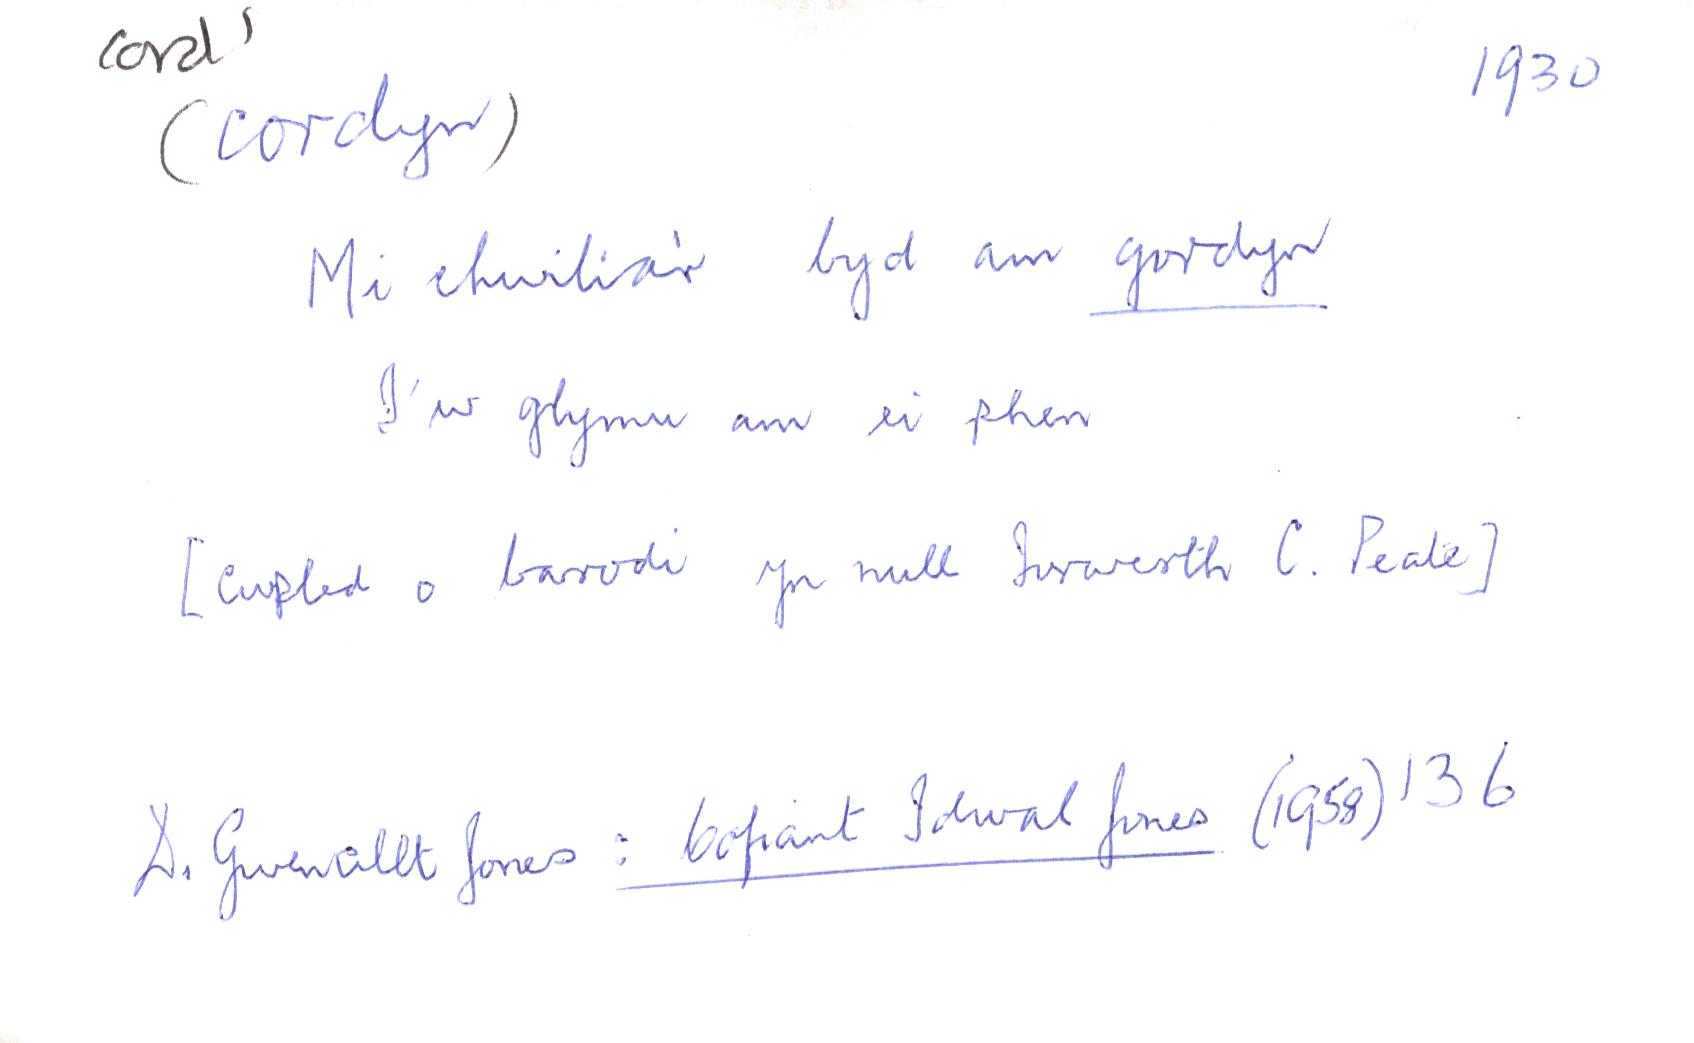 cord¹
1930
(cordyn)
Mi chwilia'r byd am gordyn
I'w glymu am ei phen
[Cwpled o barodi yn null Iorwerth C. Peate]
D. Gwenallt Jones : Cofiant Idwal Jones (1958) 136